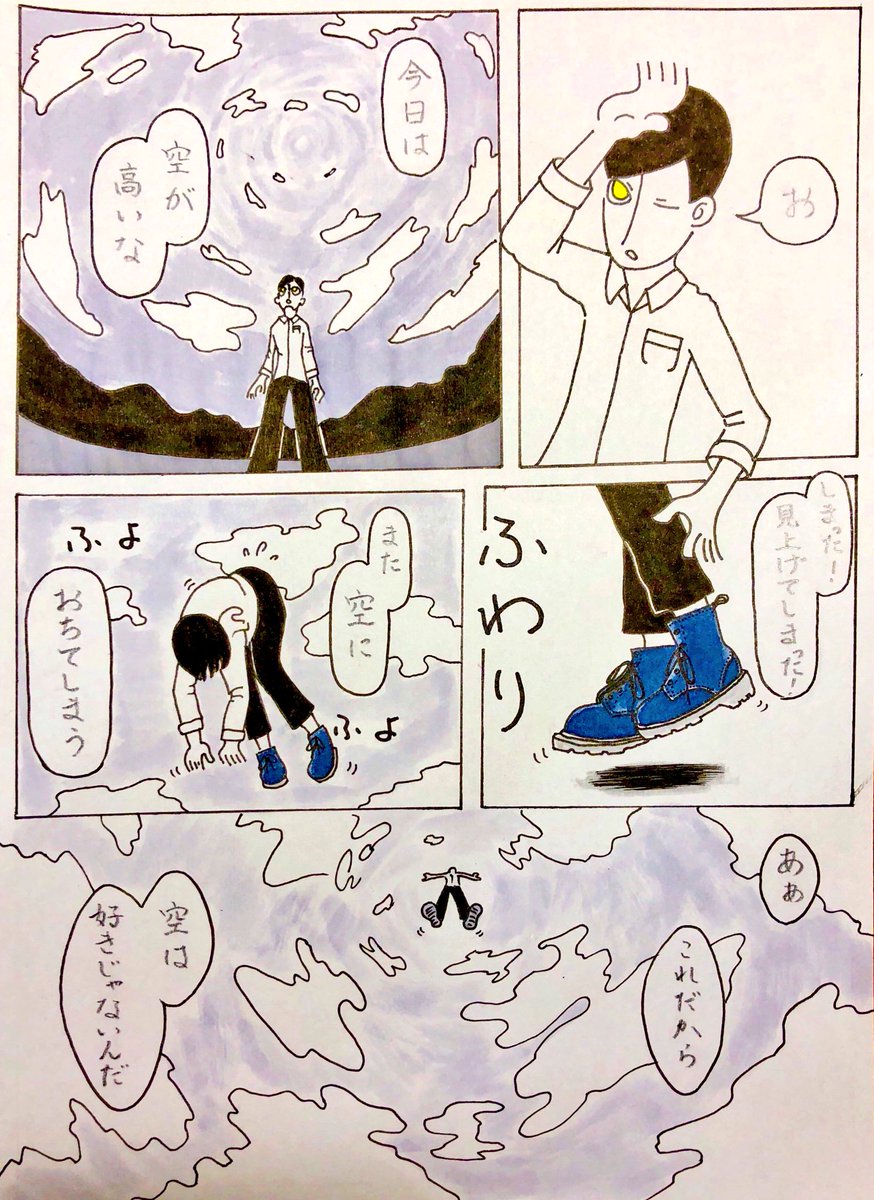 お
今日は
空が
高いな
しまった!
見上げてしまった!
ふわり
また
空に
おちてしまう
ふよ
ふよ
あぁ
これだから
空は
好きじゃないんだ